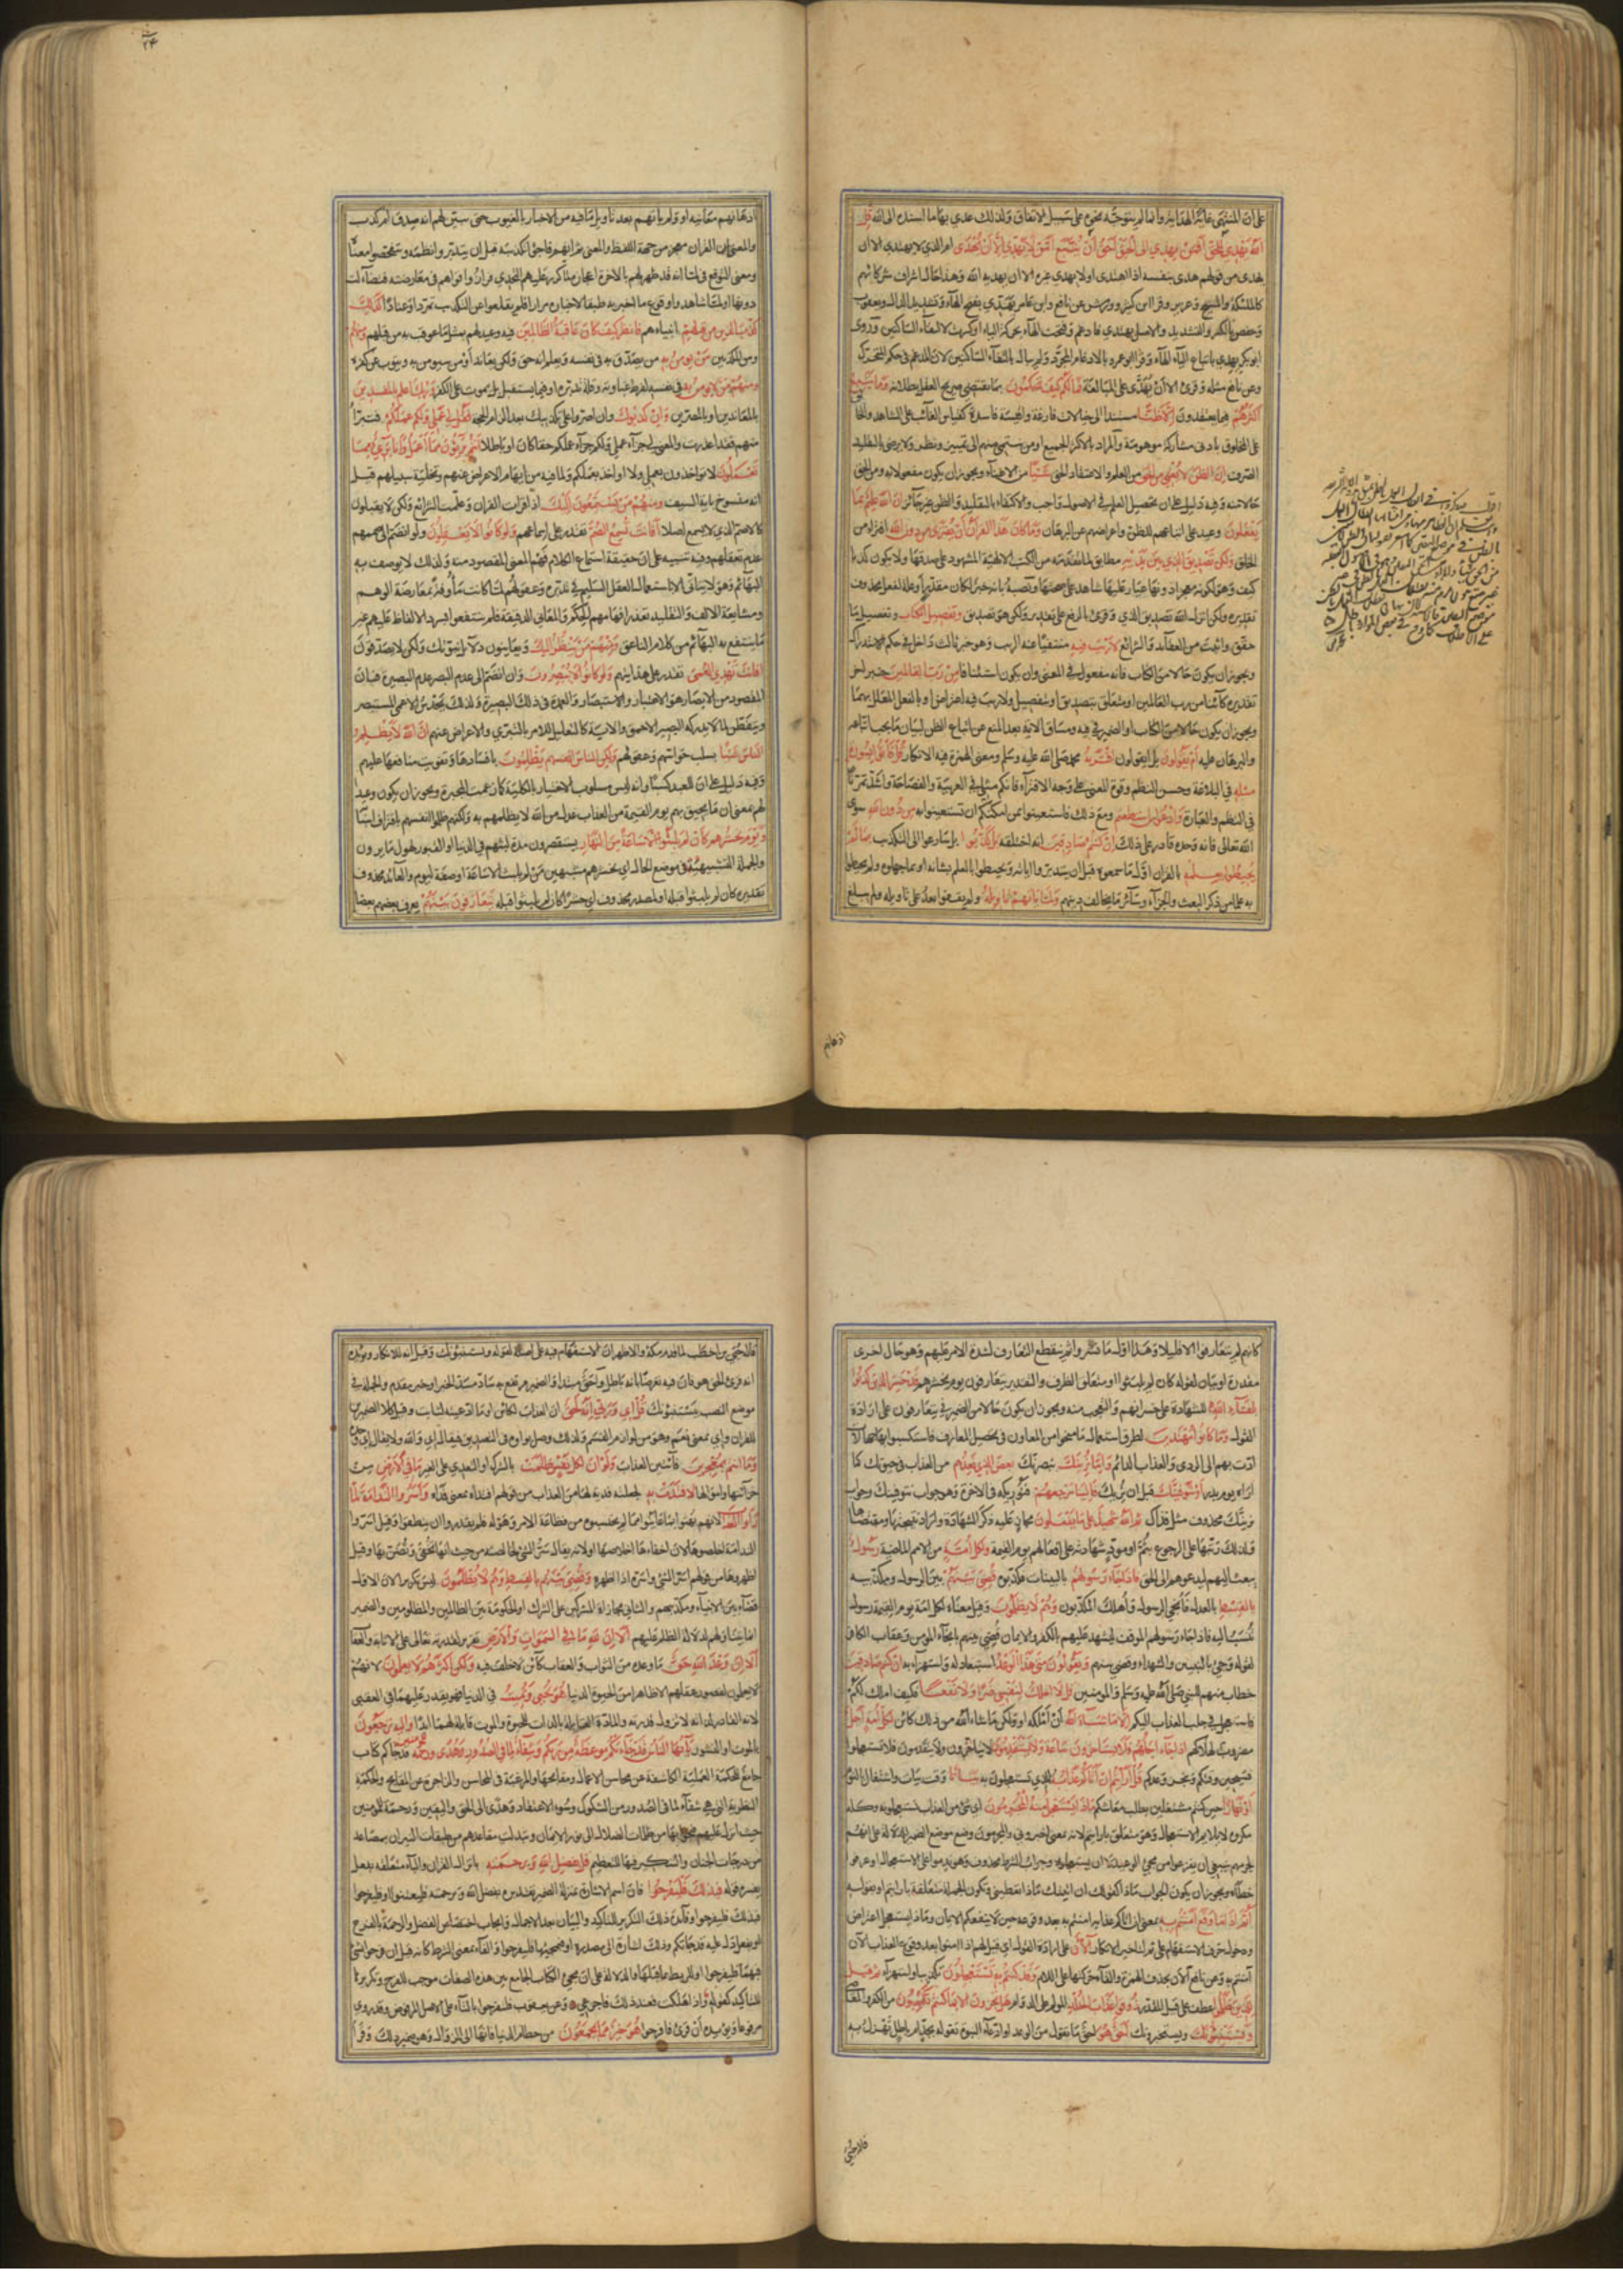 على ان المنتهى غاية الهداية وانها لم تتوجه نحوه على سبيل الاتفاق ولذلك عدى بها ما اسنده الى الله قل
الله يهدي للحق افمن يهدي الى الحق احق ان يتبع امن لا يهدي الا ان يهدى ام الذي لا يهتدي الا ان
يهدى من قولهم هدى بنفسه اذا اهتدى او لا يهدي غيره الا ان يهديه الله وهذا حال اشراف شركائهم
كالملئكة والمسيح وعزير وقرا ابن كثير وورش عن نافع وابن عامر يهدي بفتح الهاء وتشديد الدال ويعقوب
وحفص بالكسر والتشديد والاصل يهتدي فادغم وفتحت الهاء بحركة التاء او كسرت لالتقاء الساكنين وروى
ابو بكر يهدي باتباع الياء الهاء وقرا ابو عمرو بالادغام المجرد ولم يبال بالتقاء الساكنين لان المدغم في حكم المتحرك
وعن نافع مثله وقرئ الا ان يهدى للمبالغة فما لكم كيف تحكمون بما يقتضي صريح العقل بطلانه وما يتبع
اكثرهم فيما يعتقدون الا ظنا مستندا الى خيالات فارغة واقيسة فاسدة كقياس الغائب على الشاهد والخالق
على المخلوق بادنى مشاركة موهومة والمراد بالاكثر الجميع او من ينتمي منهم الى تمييز ونظر ولا يرضى بالتقليد
الصرف ان الظن لا يغني من الحق من العلم والاعتقاد الحق شيئا من الاغناء ويجوز ان يكون مفعولا به ومن الحق
حالا منه وفيه دليل على ان تحصيل العلم في الاصول واجب والاكتفاء بالتقليد والظن غير جائز ان الله عليم بما
يفعلون وعيد على اتباعهم للظن واعراضهم عن البرهان وما كان هذا القرآن ان يفترى من دون الله افتراء من
الخلق ولكن تصديق الذي بين يديه مطابقا لما تقدمه من الكتب الالهية المشهود على صدقها ولا يكون كذبا
كيف وهو لكونه معجزا دونها عيار عليها شاهد على صحتها ونصبه بانه خبر لكان مقدرا او علة لفعل محذوف
تقديره ولكن انزله الله تصديق الذي وقرئ بالرفع على تقدير ولكن هو تصديق وتفصيل الكتاب وتفصيل ما
حقق واثبت من العقائد والشرائع لا ريب فيه منتفيا عنه الريب وهو خبر ثالث داخل في حكم الاستدراك
ويجوز ان يكون حالا من الكتاب فانه مفعول في المعنى وان يكون استئنافا من رب العالمين خبر اخر
تقديره كائنا من رب العالمين او متعلق بتصديق او بتفصيل ولا ريب فيه اعتراض او بالفعل المعلل بهما
ويجوز ان يكون حالا من الكتاب او الضمير في فيه ومساق الاية بعد المنع عن اتباع الظن لبيان ما يجب اتباعه
والبرهان عليه ام يقولون بل ايقولون افتريه محمد صلى الله عليه وسلم ومعنى الهمزة فيه الانكار قل فاتوا بسورة
مثله في البلاغة وحسن النظم وقوة المعنى على وجه الافتراء فانكم مثلي في العربية والفصاحة واشد تمرنا
في النظم والعبارة وادعوا من استطعتم ومع ذلك فاستعينوا بمن امكنكم ان تستعينوا به من دون الله سوى
الله تعالى فانه وحده قادر على ذلك ان كنتم صادقين انه اختلقه بل كذبوا بل سارعوا الى التكذيب بما لم
يحيطوا بعلمه بالقرآن اول ما سمعوه قبل ان يتدبروا اياته ويحيطوا بالعلم بشانه او بما جهلوه ولم يحيطوا
به علما من ذكر البعث والجزاء وسائر ما يخالف دينهم ولما ياتهم تاويله ولم يقفوا بعد على تاويله ولم يبلغ
اذهانهم
اذهانهم معانيه او ولم ياتهم بعد تاويل ما فيه من الاخبار بالغيوب حتى يتبين لهم انه صدق ام كذب
والمعنى ان القران معجز من جهة اللفظ والمعنى ثم انهم فاجئوا تكذيبه قبل ان يتدبروا نظمه ويتفحصوا معناه
ومعنى التوقع في لما انه قد ظهر لهم بالاخرة اعجازه لما كرر عليهم التحدي فرازوا قواهم في معارضته فتضاءلت
دونها او لما شاهدوا وقوع ما اخبر به طبقا لاخباره مرارا فلم يقلعوا عن التكذيب تمردا وعنادا كذلك
كذب الذين من قبلهم انبياءهم فانظر كيف كان عاقبة الظالمين فيه وعيد لهم بمثل ما عوقب به من قبلهم ومنهم
ومن المكذبين من يؤمن به من يصدق به في نفسه ويعلم انه حق ولكن يعاند او من سيومن به ويتوب عن كفره
ومنهم من لا يؤمن به في نفسه لفرط غباوته وقلة تدبره او فيما يستقبل بل يموت على الكفر وربك اعلم بالمفسدين
بالمعاندين او بالمصرين وان كذبوك وان اصروا على تكذيبك بعد الزام الحجة فقل لي عملي ولكم عملكم فتبرأ
منهم فقد اعذرت والمعنى لي جزاء عملي ولكم جزاء عملكم حقا كان او باطلا انتم بريئون مما اعمل وانا بريء مما
تعملون لا تواخذون بعملي ولا اواخذ بعملكم ولما فيه من ايهام الاعراض عنهم وتخلية سبيلهم قيل
انه منسوخ باية السيف ومنهم من يستمعون اليك اذا قرات القران وعلمت الشرائع ولكن لا يقبلون
كالاصم الذي لا يسمع اصلا افانت تسمع الصم تقدر على اسماعهم ولو كانوا لا يعقلون ولو انضم الى صممهم
عدم تعقلهم وفيه تنبيه على ان حقيقة استماع الكلام فهم المعنى المقصود منه ولذلك لا يوصف به
البهائم وهو لا يتاتى الا باستعمال العقل السليم في تدبره وعقولهم لما كانت ماوفة بمعارضة الوهم
ومشايعة الالف والتقليد تعذر افهامهم الحكم والمعاني الدقيقة فلم ينتفعوا بسرد الالفاظ عليهم غير
ما ينتفع به البهائم من كلام الناعق ومنهم من ينظر اليك ويعاينون دلائل نبوتك ولكن لا يصدقون
افانت تهدي العمي تقدر على هدايتهم ولو كانوا لا يبصرون وان انضم الى عدم البصر عدم البصيرة فان
المقصود من الابصار هو الاعتبار والاستبصار والعمدة في ذلك البصيرة ولذلك يحدس الاعمى المستبصر
ويتفطن لما لا يدركه البصير الاحمق والاية كالتعليل للامر بالتبري والاعراض عنهم ان الله لا يظلم
الناس شيئا بسلب حواسهم وعقولهم ولكن الناس انفسهم يظلمون بافسادها وتفويت منافعها عليهم
وفيه دليل على ان للعبد كسبا وانه ليس مسلوب الاختيار بالكلية كما زعمت المجبرة ويجوز ان يكون وعيدا
لهم بمعنى ان ما يحيق بهم يوم القيمة من العذاب عدل من الله لا يظلمهم به ولكنهم ظلموا انفسهم باقتراف اسبابه
ويوم يحشرهم كان لم يلبثوا الا ساعة من النهار يستقصرون مدة لبثهم في الدنيا او القبور لهول ما يرون
والجملة التشبيهية في موضع الحال اي نحشرهم مشبهين بمن لم يلبث الا ساعة او صفة ليوم والعائد محذوف
تقديره كان لم يلبثوا قبله او لمصدر محذوف اي حشرا كان لم يلبثوا قبله يتعارفون بينهم يعرف بعضهم بعضا
كانهم لم يتعارفوا الا قليلا وهذا اول ما نشروا ثم ينقطع التعارف لشدة الامر عليهم وهو حال اخرى
مقدرة او بيان لقوله كان لم يلبثوا او متعلق الظرف والتقدير يتعارفون يوم يحشرهم قد خسر الذين كذبوا
بلقاء الله للشهادة على خسرانهم والتعجب منه ويجوز ان يكون حالا من الضمير في يتعارفون على ارادة
القول وما كانوا مهتدين لطرق استعمال ما منحوا من المعاون في تحصيل المعارف فاستكسبوا بها جهالات
ادت بهم الى الردى والعذاب الدائم واما نرينك نبصرنك بعض الذي نعدهم من العذاب في حيوتك كما
اراه يوم بدر او نتوفينك قبل ان نريك فالينا مرجعهم فنريكه في الاخرة وهو جواب نتوفينك وجواب
نرينك محذوف مثل فذاك ثم الله شهيد على ما يفعلون مجاز عليه ذكر الشهادة واراد نتيجتها ومقتضاها
ولذلك رتبها على الرجوع بثم او مود شهادته على افعالهم يوم القيمة ولكل امة من الامم الماضية رسول
يبعث اليهم ليدعوهم الى الحق فاذا جاء رسولهم بالبينات فكذبوه قضي بينهم بين الرسول ومكذبيه
بالقسط بالعدل فانجي الرسول واهلك المكذبون وهم لا يظلمون وقيل معناه لكل امة يوم القيمة رسول
تنسب اليه فاذا جاء رسولهم الموقف ليشهد عليهم بالكفر والايمان قضي بينهم بانجاء المومن وعقاب الكافر
لقوله وجئ بالنبيين والشهداء وقضي بينهم ويقولون متى هذا الوعد استبعادا له واستهزاء به ان كنتم صادقين
خطاب منهم للنبي صلى الله عليه وسلم والمومنين قل لا املك لنفسي ضرا ولا نفعا فكيف املك لكم
فاستعجل في جلب العذاب اليكم الا ما شاء الله ان املكه او ولكن ما شاء الله من ذلك كائن لكل امة اجل
مضروب لهلاكهم اذا جاء اجلهم فلا يستاخرون ساعة ولا يستقدمون لا يتاخرون ولا يتقدمون فلا تستعجلوا
فسيحين وقتكم وينجز وعدكم قل ارايتم ان اتاكم عذابه الذي تستعجلون به بياتا وقت بيات واشتغال بالنوم
او نهارا حين كنتم مشتغلين بطلب معاشكم ماذا يستعجل منه المجرمون اي شئ من العذاب تستعجلونه وكله
مكروه لا يلايم الاستعجال وهو متعلق بارايتم لانه بمعنى اخبروني والمجرمون وضع موضع الضمير للدلالة على انهم
لجرمهم ينبغي ان يفزعوا من مجئ الوعيد لا ان يستعجلوه وجواب الشرط محذوف وهو تندموا على الاستعجال او تعرفوا
خطاه ويجوز ان يكون الجواب ماذا كقولك ان اتيتك ماذا تعطيني وتكون الجملة متعلقة بارايتم او بقوله
اثم اذا ما وقع امنتم به بمعنى ان اتاكم عذابه امنتم به بعد وقوعه حين لا ينفعكم الايمان وماذا يستعجل اعتراض
ودخول حرف الاستفهام على ثم لانكار التاخير الآن على ارادة القول اي قيل لهم اذا امنوا بعد وقوع العذاب الآن
آمنتم به وعن نافع آلان بحذف الهمزة والقاء حركتها على اللام وقد كنتم به تستعجلون تكذيبا واستهزاء ثم قيل
للذين ظلموا عطف على قيل المقدر ذوقوا عذاب الخلد المولم على الدوام هل تجزون الا بما كنتم تكسبون من الكفر والمعاصي
ويستنبئونك ويستخبرونك احق هو احق ما تقول من الوعد او ادعاء النبوة تقوله بجد ام باطل تهزل به
قاله حيي
قاله حيي بن اخطب لما قدم مكة والاظهر ان الاستفهام فيه على اصله لقوله ويستنبئونك وقيل انه للانكار ويؤيده
انه قرئ الحق هو فان فيه تعريضا بانه باطل واحق مبتدا والضمير مرتفع به ساد مسد الخبر او خبر مقدم والجملة في
موضع النصب بيستنبئونك قل اي وربي انه لحق ان العذاب لكائن او ما ادعيته لثابت وقيل كلا الضميرين
للقران واي بمعنى نعم وهو من لوازم القسم ولذلك يوصل بواوه في التصديق فيقال اي والله ولا يقال اي وحده
وما انتم بمعجزين فائتين العذاب ولو ان لكل نفس ظلمت بالشرك او التعدي على الغير ما في الارض من
خزائنها واموالها لافتدت به لجعلته فدية لها من العذاب من قولهم افتداه بمعنى فداه واسروا الندامة لما
راوا العذاب لانهم بهتوا بما عاينوا مما لم يحتسبوه من فظاعة الامر وهوله فلم يقدروا ان ينطقوا وقيل اسروا
الندامة اخلصوها لان اخفاءها اخلاصها او لانه يقال سر الشئ لخالصته من حيث انها تخفى ويضن بها وقيل
اظهروها من قولهم اسر الشئ واشره اذا اظهره وقضي بينهم بالقسط وهم لا يظلمون ليس تكريرا لان الاول
قضاء بين الانبياء ومكذبيهم والثاني مجازاة المشركين على الشرك او الحكومة بين الظالمين والمظلومين والضمير
انما يتناولهم لدلالة الظلم عليهم الا ان لله ما في السموات والارض تقرير لقدرته تعالى على الاثابة والعقاب
الا ان وعد الله حق ما وعده من الثواب والعقاب كائن لا خلف فيه ولكن اكثرهم لا يعلمون لانهم
لا يعلمون لقصور عقلهم الا ظاهرا من الحيوة الدنيا هو يحيي ويميت في الدنيا فهو يقدر عليهما في العقبى
لانه القادر لذاته لا تزول قدرته والمادة القابلة بالذات للحيوة والموت قابلة لهما ابدا واليه ترجعون
بالموت او النشور يا ايها الناس قد جاءتكم موعظة من ربكم وشفاء لما في الصدور وهدى ورحمة للمؤمنين قد جاءكم كتاب
جامع للحكمة العملية الكاشفة عن محاسن الاعمال ومقابحها والمرغبة في المحاسن والزاجرة عن المقابح والحكمة
النظرية التي هي شفاء لما في الصدور من الشكوك وسوء الاعتقاد وهدى الى الحق واليقين ورحمة للمومنين
حيث انزلت عليهم فنجوا بها من ظلمات الضلال الى نور الايمان وتبدلت مقاعدهم من طبقات النيران بمصاعد
من درجات الجنان والتنكير فيها للتعظيم قل بفضل الله وبرحمته بانزال القران والباء متعلقة بفعل
يفسره قوله فبذلك فليفرحوا فان اسم الاشارة بمنزلة الضمير تقديره بفضل الله وبرحمته فليعتنوا او فليفرحوا
فبذلك فليفرحوا وفائدة ذلك التكرير التاكيد والبيان بعد الاجمال وايجاب اختصاص الفضل والرحمة بالفرح
او بفعل دل عليه قد جاءتكم وذلك اشارة الى مصدره اي فبمجيئها فليفرحوا والفاء بمعنى الشرط كانه قيل ان فرحوا بشئ
فبهما فليفرحوا او للربط بما قبلها والدلالة على ان مجئ الكتاب الجامع بين هذه الصفات موجب للفرح وتكريرها
للتاكيد كقوله واذا هلكت فعند ذلك فاجزعي وعن يعقوب فلتفرحوا بالتاء على الاصل المرفوض وقد روي
مرفوعا ويؤيده انه قرئ فافرحوا هو خير مما يجمعون من حطام الدنيا فانها الى الزوال وهو ضمير ذلك وقرأ